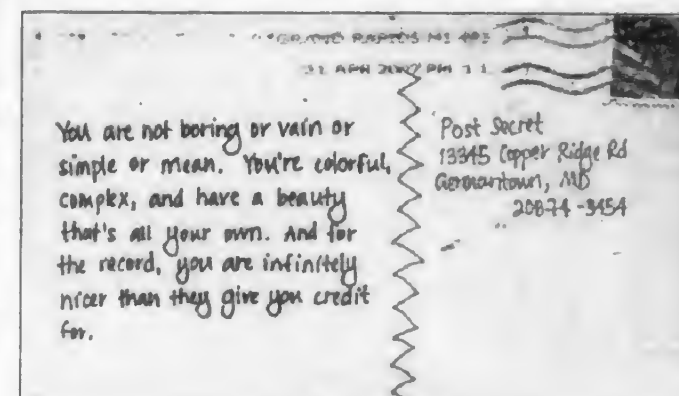 GRAND RAPIDS MI 493
APR 2007 PM 1 L
You are not boring or vain or
simple or mean. You're colorful,
complex, and have a beauty
that's all your own. And for
the record, you are infinitely
nicer than they give you credit
for.
Post Secret
13345 Copper Ridge Rd
Germantown, MD
20874-3454